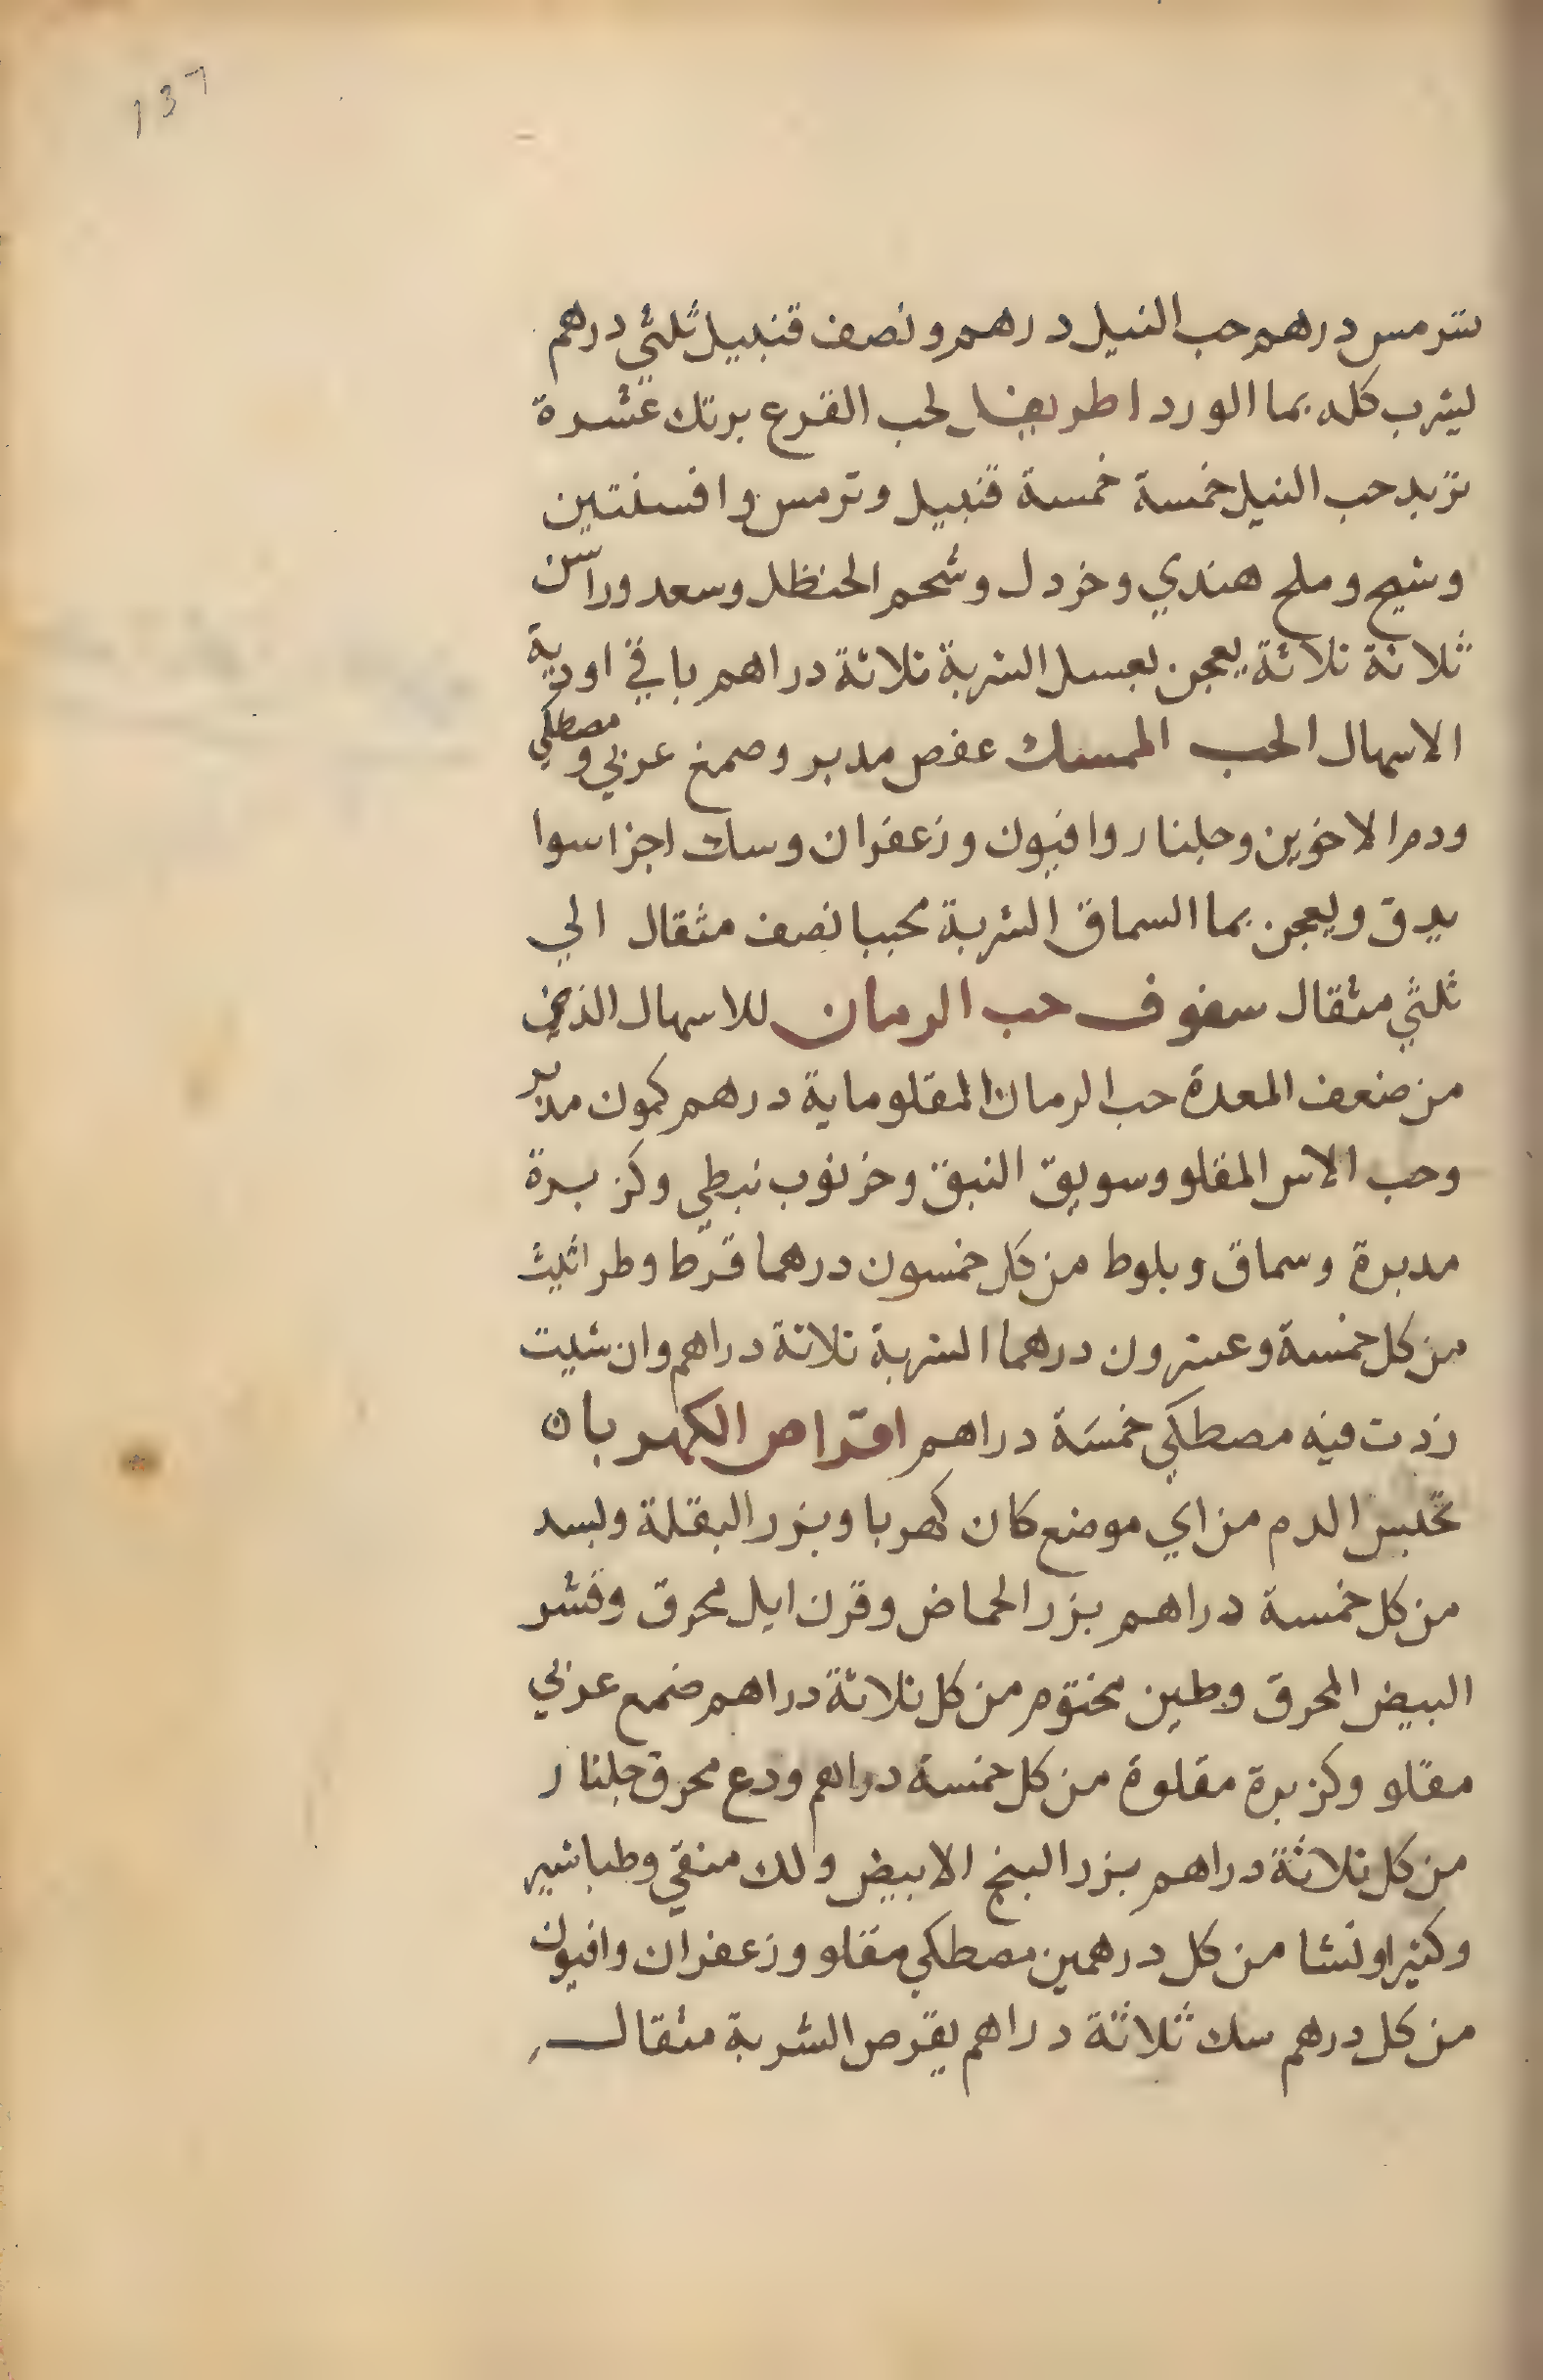 137
سرمس درهم حب النيل درهم ونصف قنبيل ثلثي درهم
يشرب كله بما الورد اطريفل لحب القرع برنك عشرة
تربد حب النيل خمسة خمسة قنبيل وترمس وافسنتين
وشيح وملح هندي وخردل وشحم الحنظل وسعد وراسن
ثلاثة ثلاثة يعجن بعسل الشربة ثلاثة دراهم باقي اودية
الاسهال الحب الممسك عفص مدبر وصمغ عربي ومصطكي
ودم الاخوين وجلنار وافيون وزعفران وسك اجزا سوا
يدق ويعجن بما السماق الشربة محببا نصف مثقال الي
ثلثي مثقال سفوف حب الرمان للاسهال الذي
من ضعف المعدة حب الرمان المقلو ماية درهم كمون مدبر
وحب الاس المقلو وسويق النبق وخرنوب نبطي وكزبرة
مدبرة وسماق وبلوط من كل خمسون درهما قرط وطراثيث
من كل خمسة وعشرون درهما الشربة ثلاثة دراهم وان شيت
زدت فيه مصطكي خمسة دراهم اقراص الكهربا ن
تحبس الدم من اي موضع كان كهربا وبزر البقلة وبسد
من كل خمسة دراهم بزر الحماض وقرن ايل محرق وقشر
البيض المحرق وطين مختوم من كل ثلاثة دراهم ضمع عربي
مقلو وكزبرة مقلوة من كل خمسة دراهم ودع محرق جلنار
من كل ثلاثة دراهم بزر البنج الابيض ولك منقي وطباشير
وكثيرا ونشا من كل درهمين مصطكي مقلو وزعفران وافيون
من كل درهم سك ثلاثة دراهم يقرص الشربة مثقال